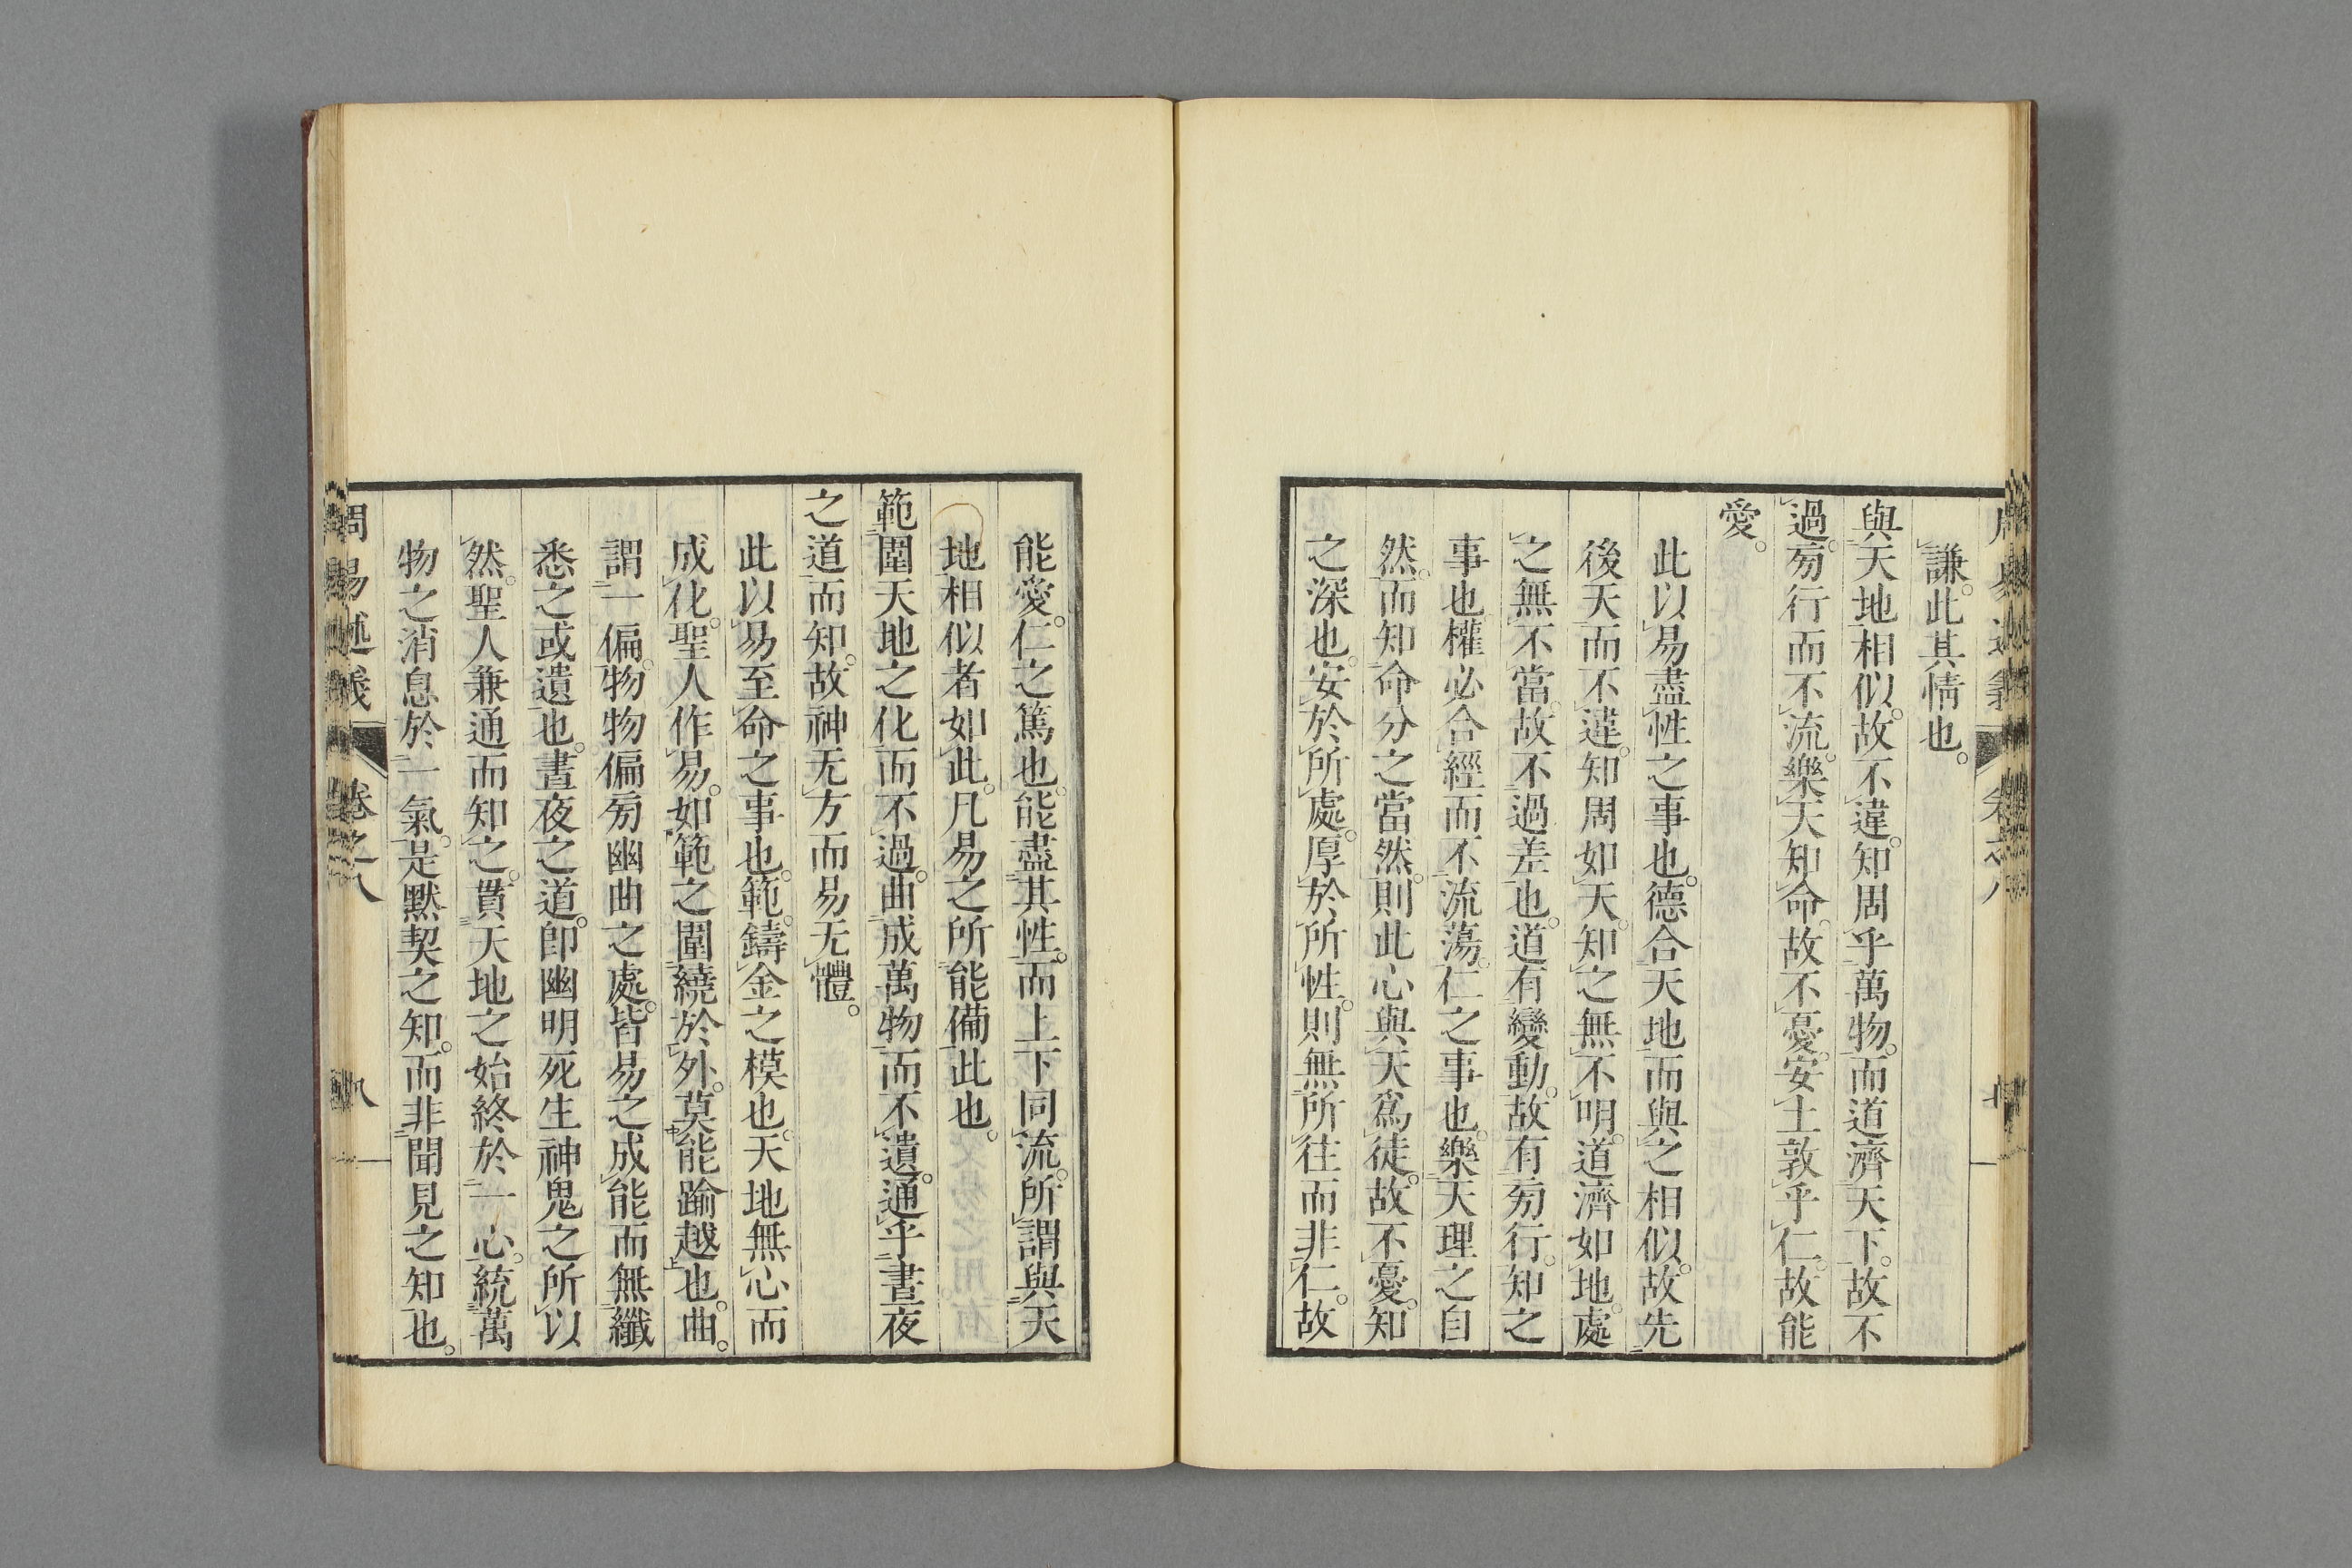 謙。此其情也。
與天地相似。故不違。知周乎萬物。而道濟天下。故不
過。旁行而不流。樂天知命。故不憂。安土敦乎仁。故能
愛。
此以易盡性之事也。德合天地而與之相似。故先
後天而不違。知周如天。知之無不明。道濟如地。處
之無不當。故不過差也。道有變動。故有旁行。知之
事也。權必合經而不流蕩。仁之事也。樂天理之自
然。而知命分之當然。則此心與天爲徒。故不憂。知
之深也。安於所處。厚於所性。則無所往而非仁。故
能愛。仁之篤也。能盡其性。而上下同流。所謂與天
地相似者如此。凡易之所能備此也。
範圍天地之化而不過。曲成萬物而不遺。通乎晝夜
之道而知。故神无方而易无體。
此以易至命之事也。範。鑄金之模也。天地無心而
成化。聖人作易。如範之圍繞於外。莫能踰越也。曲。
謂一偏。物物偏旁幽曲之處。皆易之成能而無纖
悉之或遺也。晝夜之道。卽幽明死生神鬼之所以
然。聖人兼通而知之。貫天地之始終於一心。統萬
物之消息於一氣。是默契之知。而非聞見之知也。
周易述義 卷之八